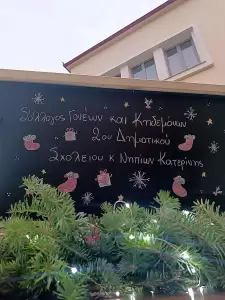 Σύλλογος Γονέων και Κηδεμόνων
2ου Δημοτικού
Σχολείου κ Νηπίων Κατερίνης